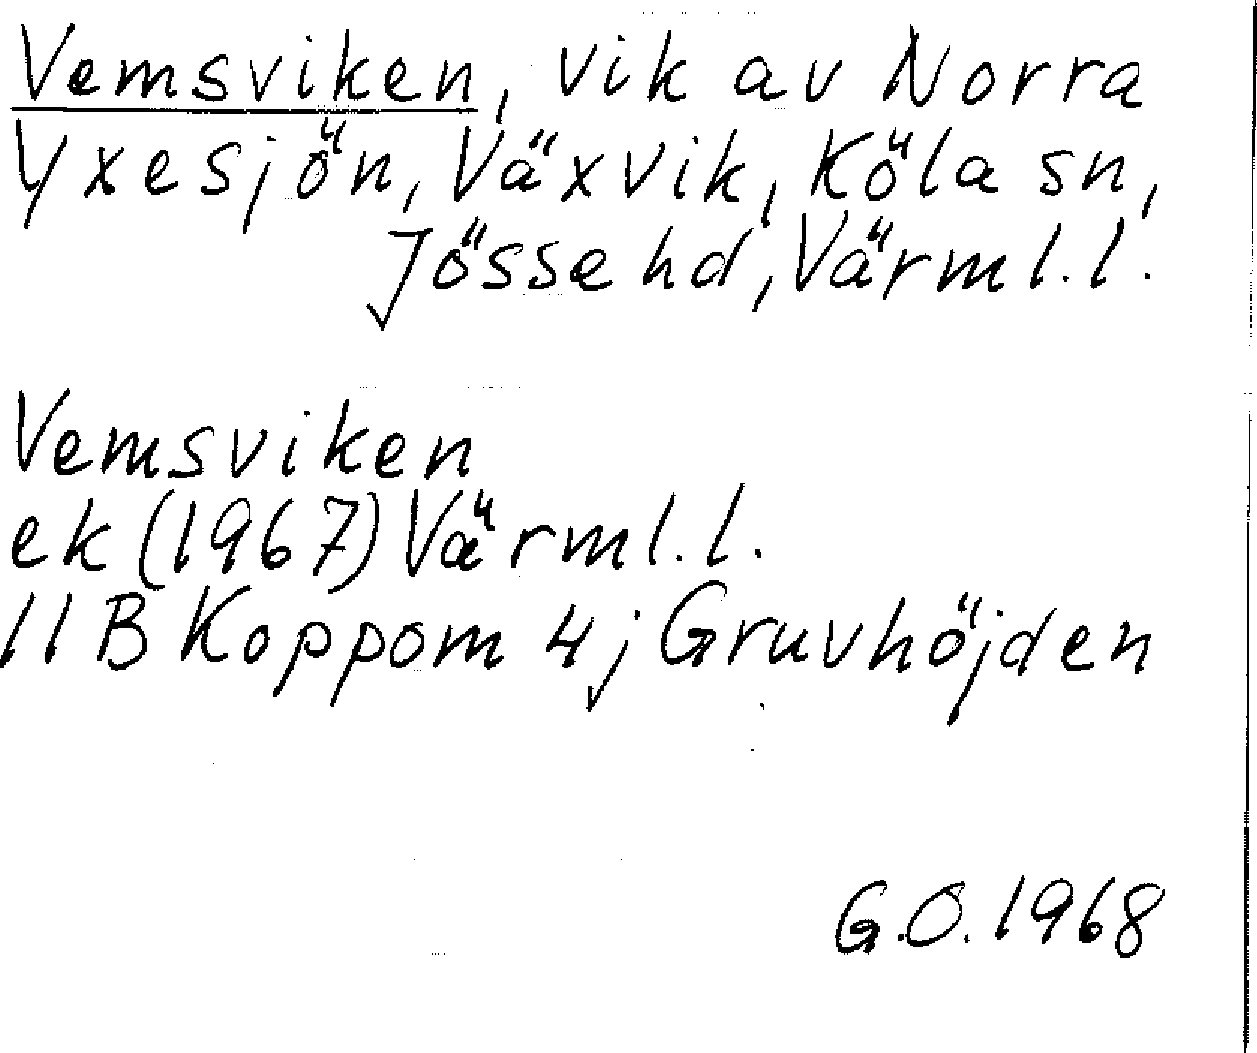 Vemsviken, vik av Norra
Yxesjön, Växvik, Köla sn,
Jösse hd, Värml.l.
Vemsviken
ek (1967) Värml.l.
11B Koppom 4j Gruvhöjden
G.O. 1968